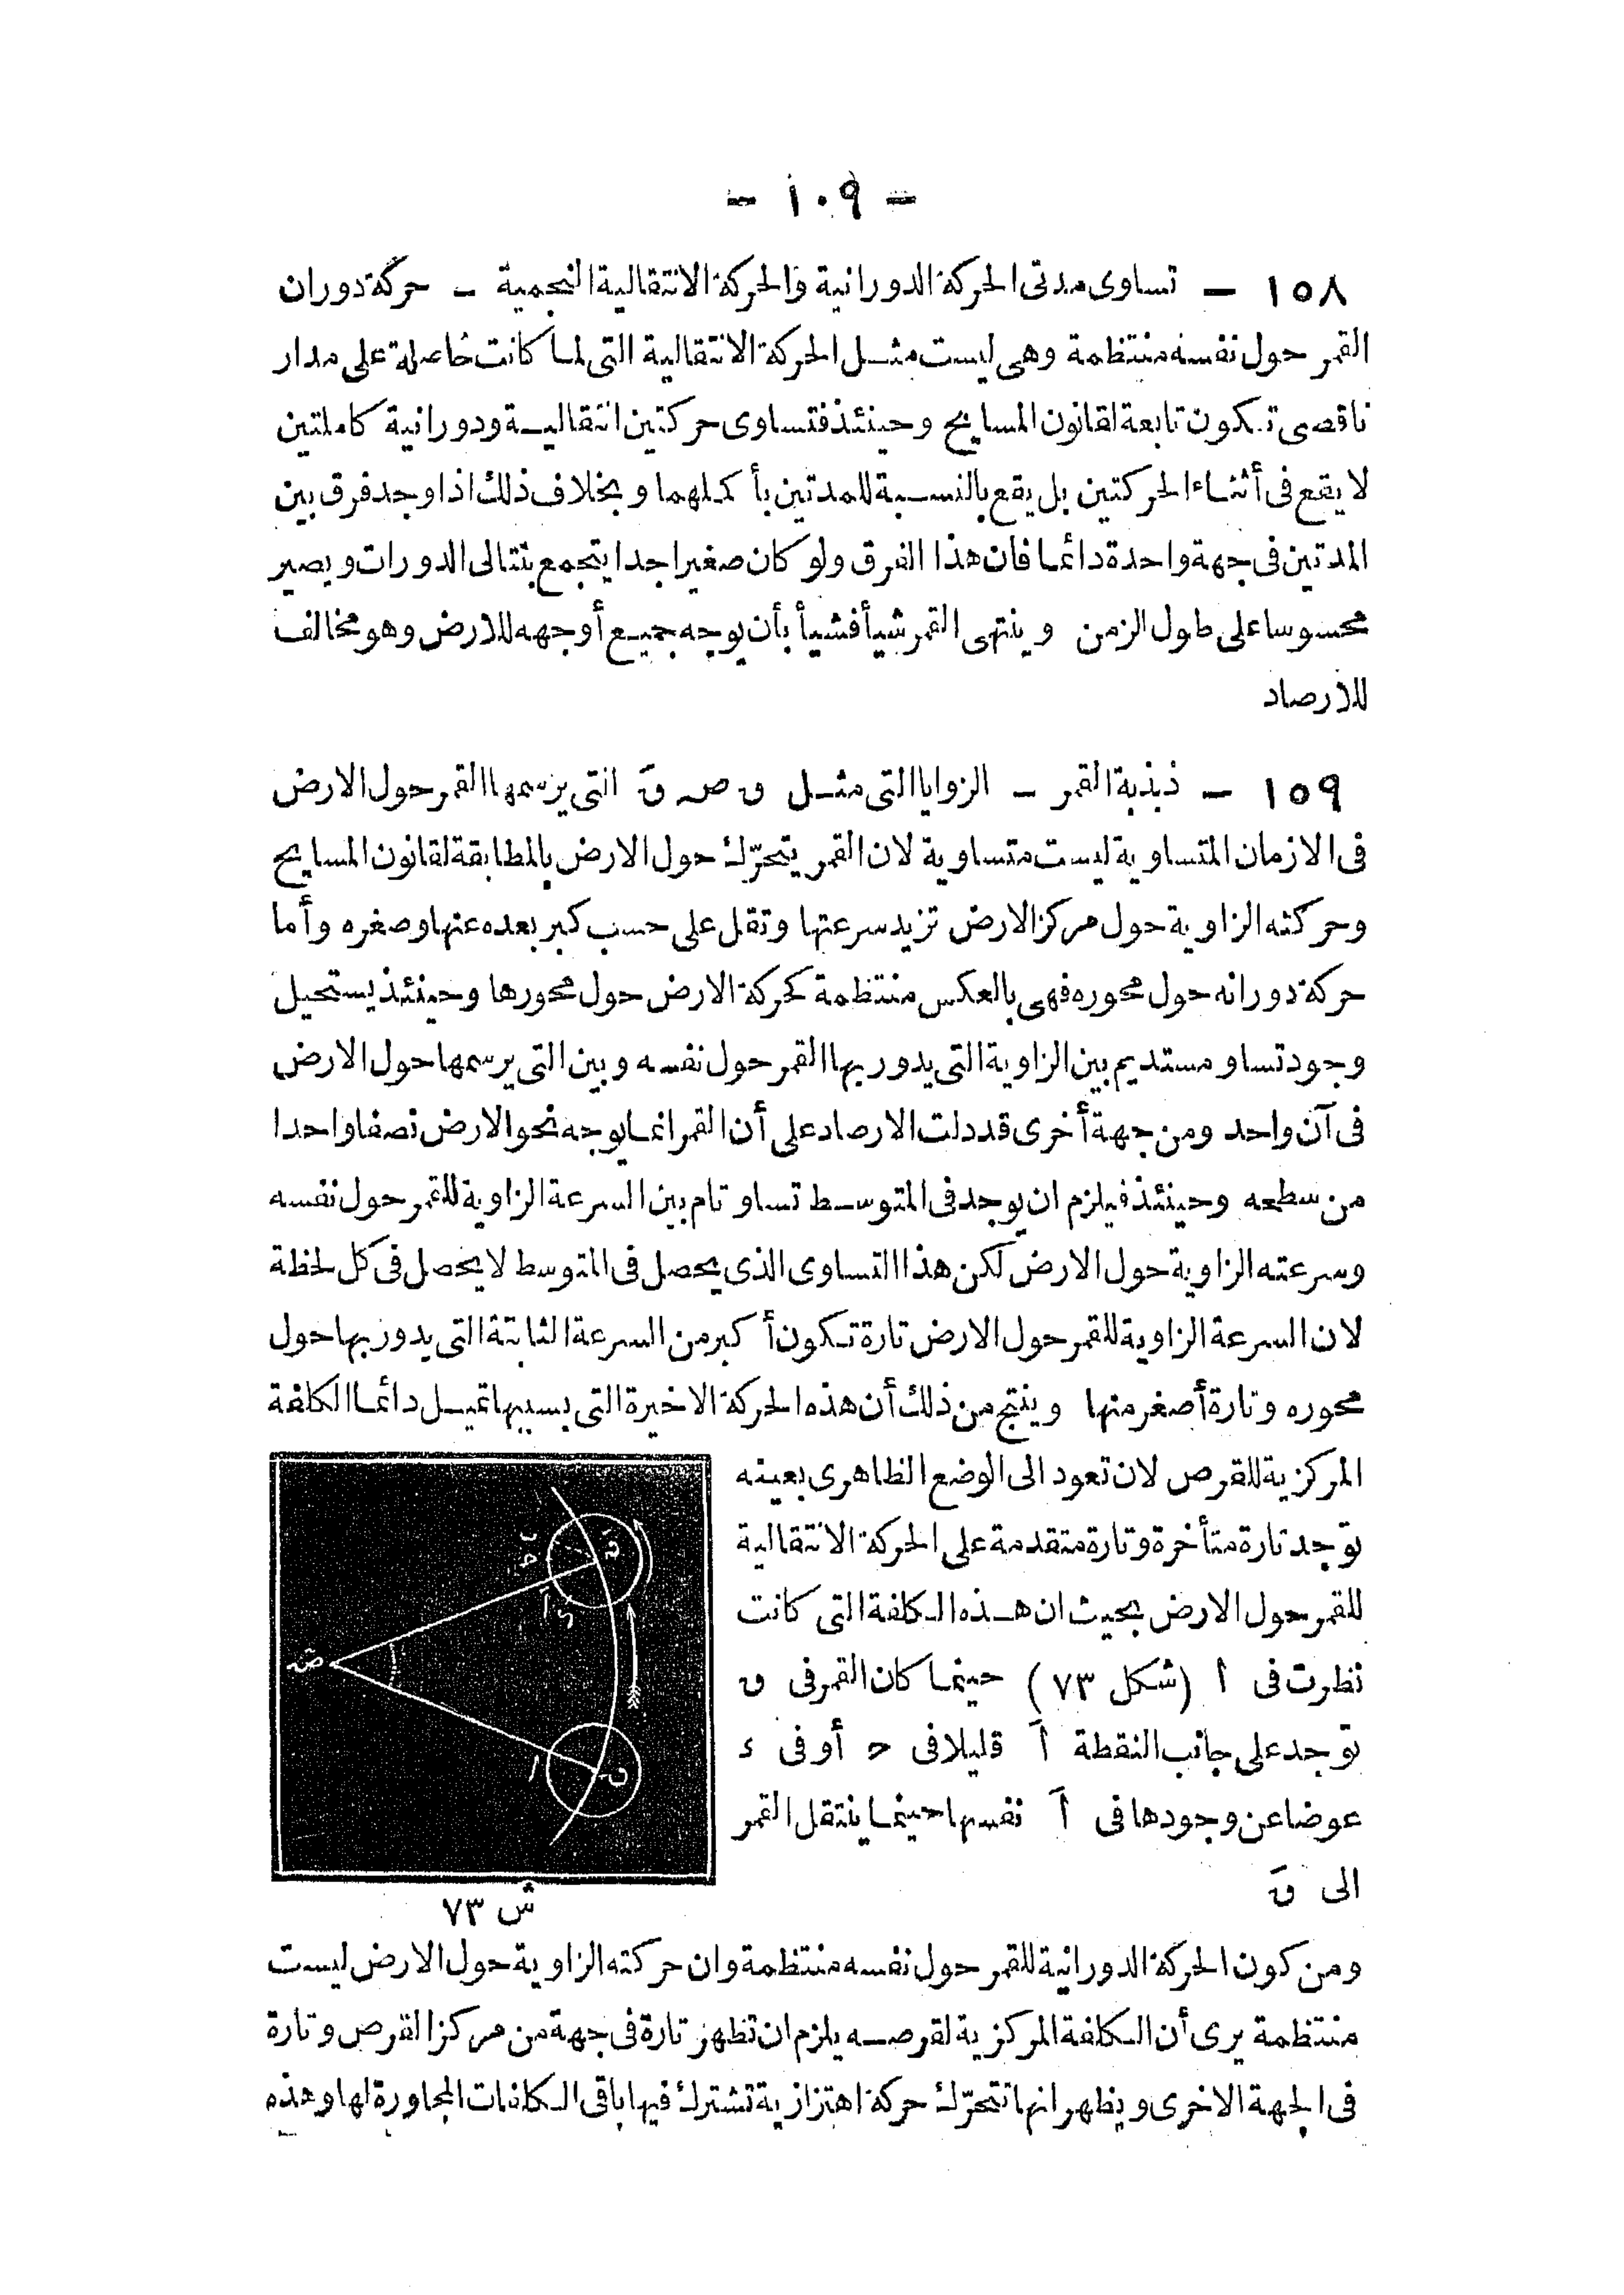 - ١٠٩ -
١٥٨ - تساوى مدتى الحركة الدورانية والحركة الانتقالية النجمية - حركة دوران
القمر حول نفسه منتظمة وهى ليست مثل الحركة الانتقالية التى لما كانت حاصلة على مدار
ناقصى تكون تابعة لقانون المسايح وحينئذ فتساوى حركتين انتقالية ودورانية كاملتين
لا يقع فى أثناء الحركتين بل يقع بالنسبة للمدتين بأكملهما وبخلاف ذلك اذا وجد فرق بين
المدتين فى جهة واحدة دائما فان هذا الفرق ولو كان صغيرا جدا يتجمع بتتالى الدورات ويصير
محسوسا على طول الزمن وينتهى القمر شيأ فشيأ بأن يوجه جميع أوجهه للارض وهو مخالف
للارصاد
١٥٩ - ذبذبة القمر - الزوايا التى مثل ق ض قَ التى يرسمها القمر حول الارض
فى الازمان المتساوية ليست متساوية لان القمر يتحرّك حول الارض بالمطابقة لقانون المسايح
وحركته الزاوية حول مركز الارض تزيد سرعتها وتقل على حسب كبر بعده عنها وصغره وأما
حركة دورانه حول محوره فهى بالعكس منتظمة كحركة الارض حول محورها وحينئذ يستحيل
وجود تساو مستديم بين الزاوية التى يدور بها القمر حول نفسه وبين التى يرسمها حول الارض
فى آن واحد ومن جهة أخرى قد دلت الارصاد على أن القمر انما يوجه نحو الارض نصفا واحدا
من سطحه وحينئذ فيلزم ان يوجد فى المتوسط تساو تام بين السرعة الزاوية للقمر حول نفسه
وسرعته الزاوية حول الارض لكن هذا التساوى الذى يحصل فى المتوسط لا يحصل فى كل لحظة
لان السرعة الزاوية للقمر حول الارض تارة تكون أكبر من السرعة الثابتة التى يدور بها حول
محوره وتارة أصغر منها وينتج من ذلك أن هذه الحركة الاخيرة التى بسببها تميل دائما الكلفة
المركزية للقرص لان تعود الى الوضع الظاهرى بعينه
توجد تارة متأخرة وتارة متقدمة على الحركة الانتقالية
للقمر حول الارض بحيث ان هذه الكلفة التى كانت
نظرت فى ا (شكل ٧٣) حينما كان القمر فى ق
توجد على جانب النقطة اَ قليلا فى ح أو فى ء
عوضا عن وجودها فى اَ نفسها حينما ينتقل القمر
الى قَ
ش ٧٣
ومن كون الحركة الدورانية للقمر حول نفسه منتظمة وان حركته الزاوية حول الارض ليست
منتظمة يرى أن الكلفة المركزية لقرصه يلزم ان تظهر تارة فى جهة من مركز القرص وتارة
فى الجهة الاخرى ويظهر انها تتحرّك حركة اهتزازية تشترك فيها باقى الكلفات المجاورة لها وهذه